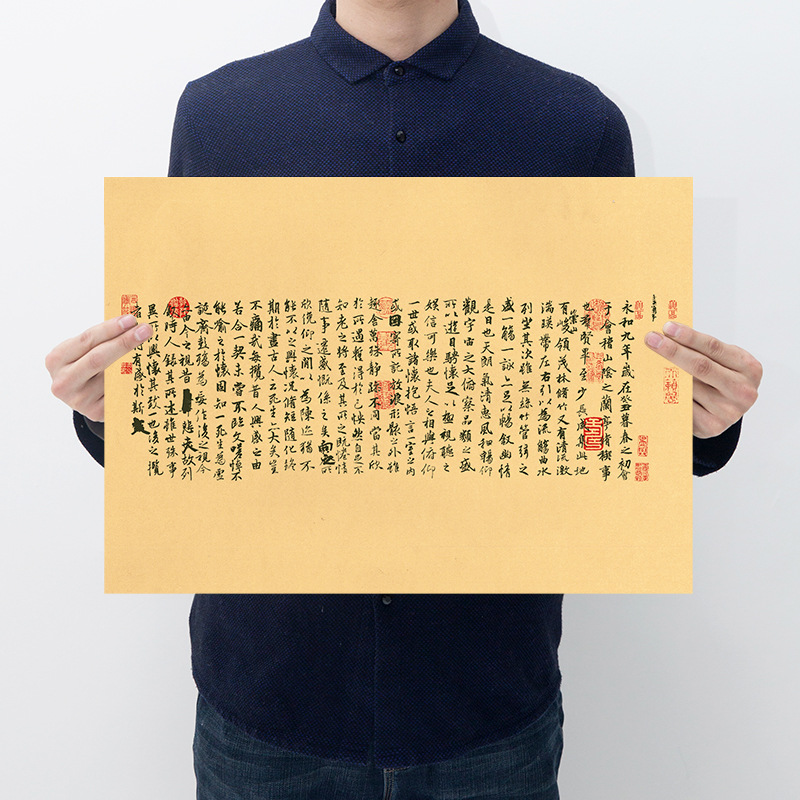 永和九年歲在癸丑暮春之初會
于會稽山陰之蘭亭脩稧事
也羣賢畢至少長咸集此地
有崇山峻領茂林脩竹又有清流激
湍暎帶左右引以為流觴曲水
列坐其次雖無絲竹管弦之
盛一觴一詠亦足以暢敘幽情
是日也天朗氣清惠風和暢仰
觀宇宙之大俯察品類之盛
所以遊目騁懷足以極視聽之
娛信可樂也夫人之相與俯仰
一世或取諸懷抱悟言一室之內
或因寄所託放浪形骸之外雖
趣舍萬殊靜躁不同當其欣
於所遇暫得於己怏然自足不
知老之將至及其所之既惓情
隨事遷感慨係之矣向之所
欣俛仰之間以為陳迹猶不
能不以之興懷況脩短隨化終
期於盡古人云死生亦大矣豈
不痛哉每攬昔人興感之由
若合一契未嘗不臨文嗟悼不
能喻之於懷固知一死生為虛
誕齊彭殤為妄作後之視今
由今之視昔悲夫故列
敘時人錄其所述雖世殊事
異所以興懷其致一也後之攬
者有感於斯文